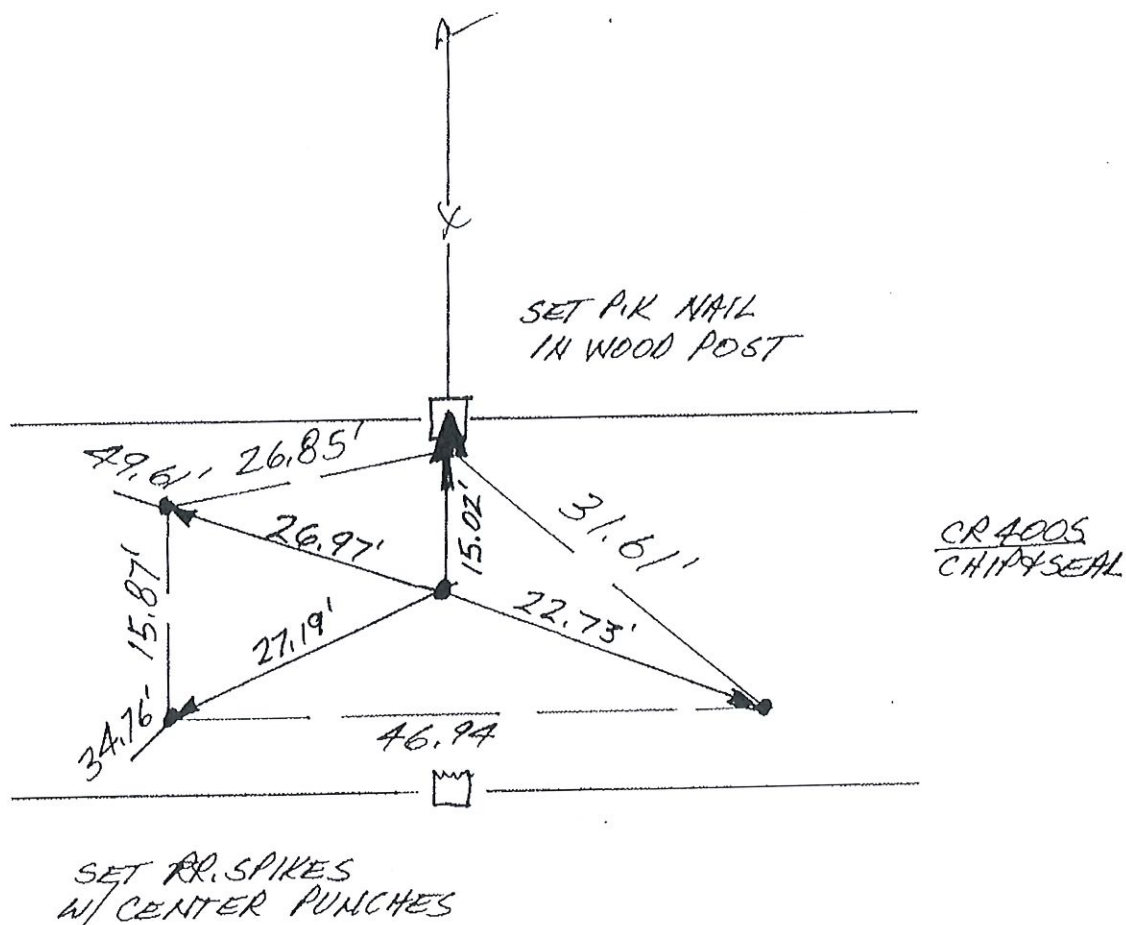 SET P.K NAIL
IN WOOD POST
49.61'
26.85'
26.97'
15.02'
31.61'
CR 400S
CHIP&SEAL
15.87'
27.19'
22.73'
34.76'
46.94
SET RR. SPIKES
W/ CENTER PUNCHES